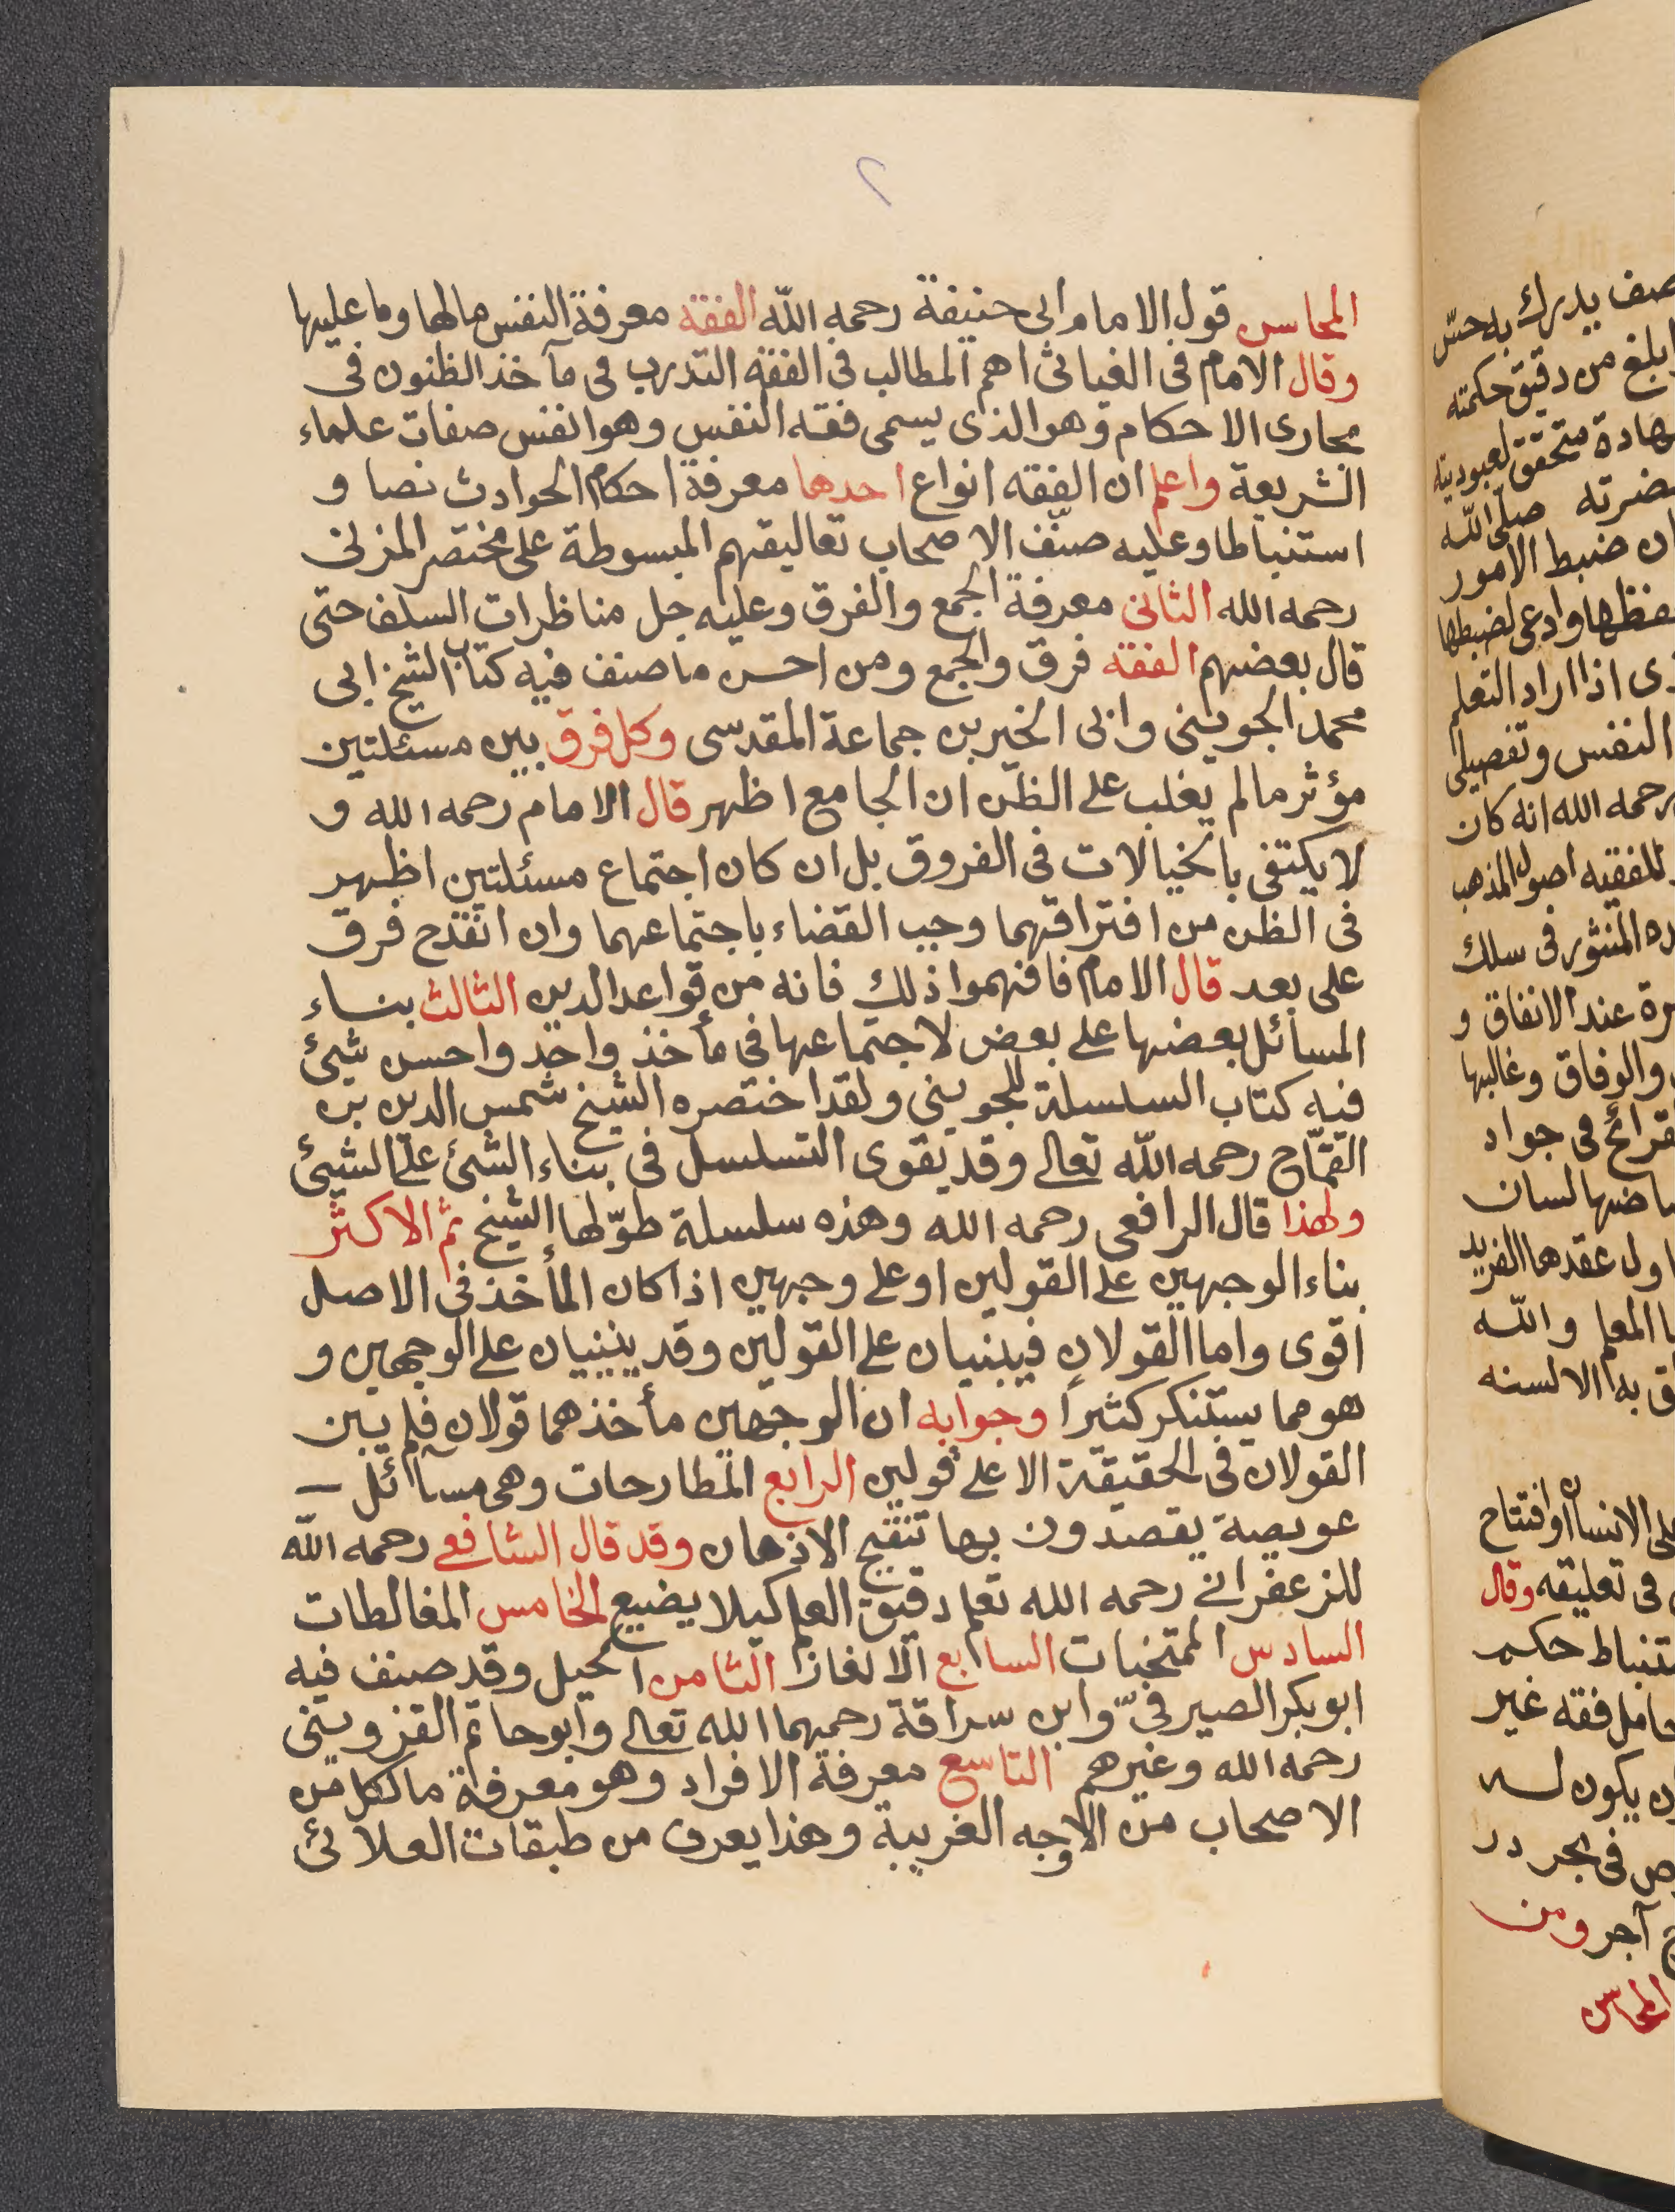 ٢
المحاسن قول الامام ابى حنيفة رحمه الله الفقه معرفة النفس مالها وما عليها
وقال الامام فى الغياثى اهم المطالب فى الفقه التدرب فى مآخذ الظنون فى
مجارى الاحكام وهو الذى يسمى فقه النفس وهو انفس صفات علماء
الشريعة واعلم ان الفقه انواع احدها معرفة احكام الحوادث نصا و
استنباطا وعليه صنّف الاصحاب تعاليقهم المبسوطة على مختصر المزنى
رحمه الله الثانى معرفة الجمع والفرق وعليه جل مناظرات السلف حتى
قال بعضهم الفقه فرق والجمع ومن احسن ما صنف فيه كتاب الشيخ ابى
محمد الجوينى وابى الخير بن جماعة المقدسى وكل فرق بين مسئلتين
مؤثر مالم يغلب على الظن ان الجامع اظهر قال الامام رحمه الله و
لا يكتفى بالخيالات فى الفروق بل ان كان اجتماع مسئلتين اظهر
فى الظن من افتراقهما وجب القضاء باجتماعهما وان انقدح فرق
على بعد قال الامام فافهموا ذلك فانه من قواعد الدين الثالث بناء
المسائل بعضها على بعض لاجتماعها فى مأخذ واحد واحسن شيئ
فيه كتاب السلسلة للجوينى ولقد اختصره الشيخ شمس الدين بن
القمّاح رحمه الله تعالى وقد يقوى التسلسل فى بناء الشئ على الشيئ
ولهذا قال الرافعى رحمه الله وهذه سلسلة طوّلها الشيخ ثم الاكثر
بناء الوجهين على القولين او على وجهين اذا كان المأخذ فى الاصل
اقوى واما القولان فيبنيان على القولين وقد يبنيان على الوجهين و
هو مما يستنكر كثيراً وجوابه ان الوجهين مأخذهما قولان فلم يبن
القولان فى الحقيقة الا على قولين الرابع المطارحات وهى مسآئل
عويصة يقصدون بها تنقيح الاذهان وقد قال الشافعى رحمه الله
للزعفرانى رحمه الله تعلم دقيق العلم كيلا يضيع الخامس المغالطات
السادس الممتحنات السابع الالغاز الثامن الحيل وقد صنف فيه
ابو بكر الصيرفىّ وابن سراقة رحمهما الله تعالى وابو حاتم القزوينى
رحمه الله وغيرهم التاسع معرفة الافراد وهو معرفة ما لكل من
الاصحاب من الاوجه الغريبة وهذا يعرف من طبقات العلائى
صف يدرك به حسّ
ابلغ من دقيق حكمته
متحقق لعبوديته
صلى الله
ان ضبط الامور
وادعى لضبطها
اذا اراد التعلم
النفس وتفصيلى
رحمه الله انه كان
للفقيه اصول المذهب
المنثور فى سلك
عند الاتفاق و
والوفاق وغالبها
فى جواد
لسان
عقدهما الفريد
المعلم والله
به الالسنه
على الانسان او افتتاح
فى تعليقه وقال
حكم
حامل فقه غير
ان يكون له
فى بحر در
آجر ومن
المحاسن